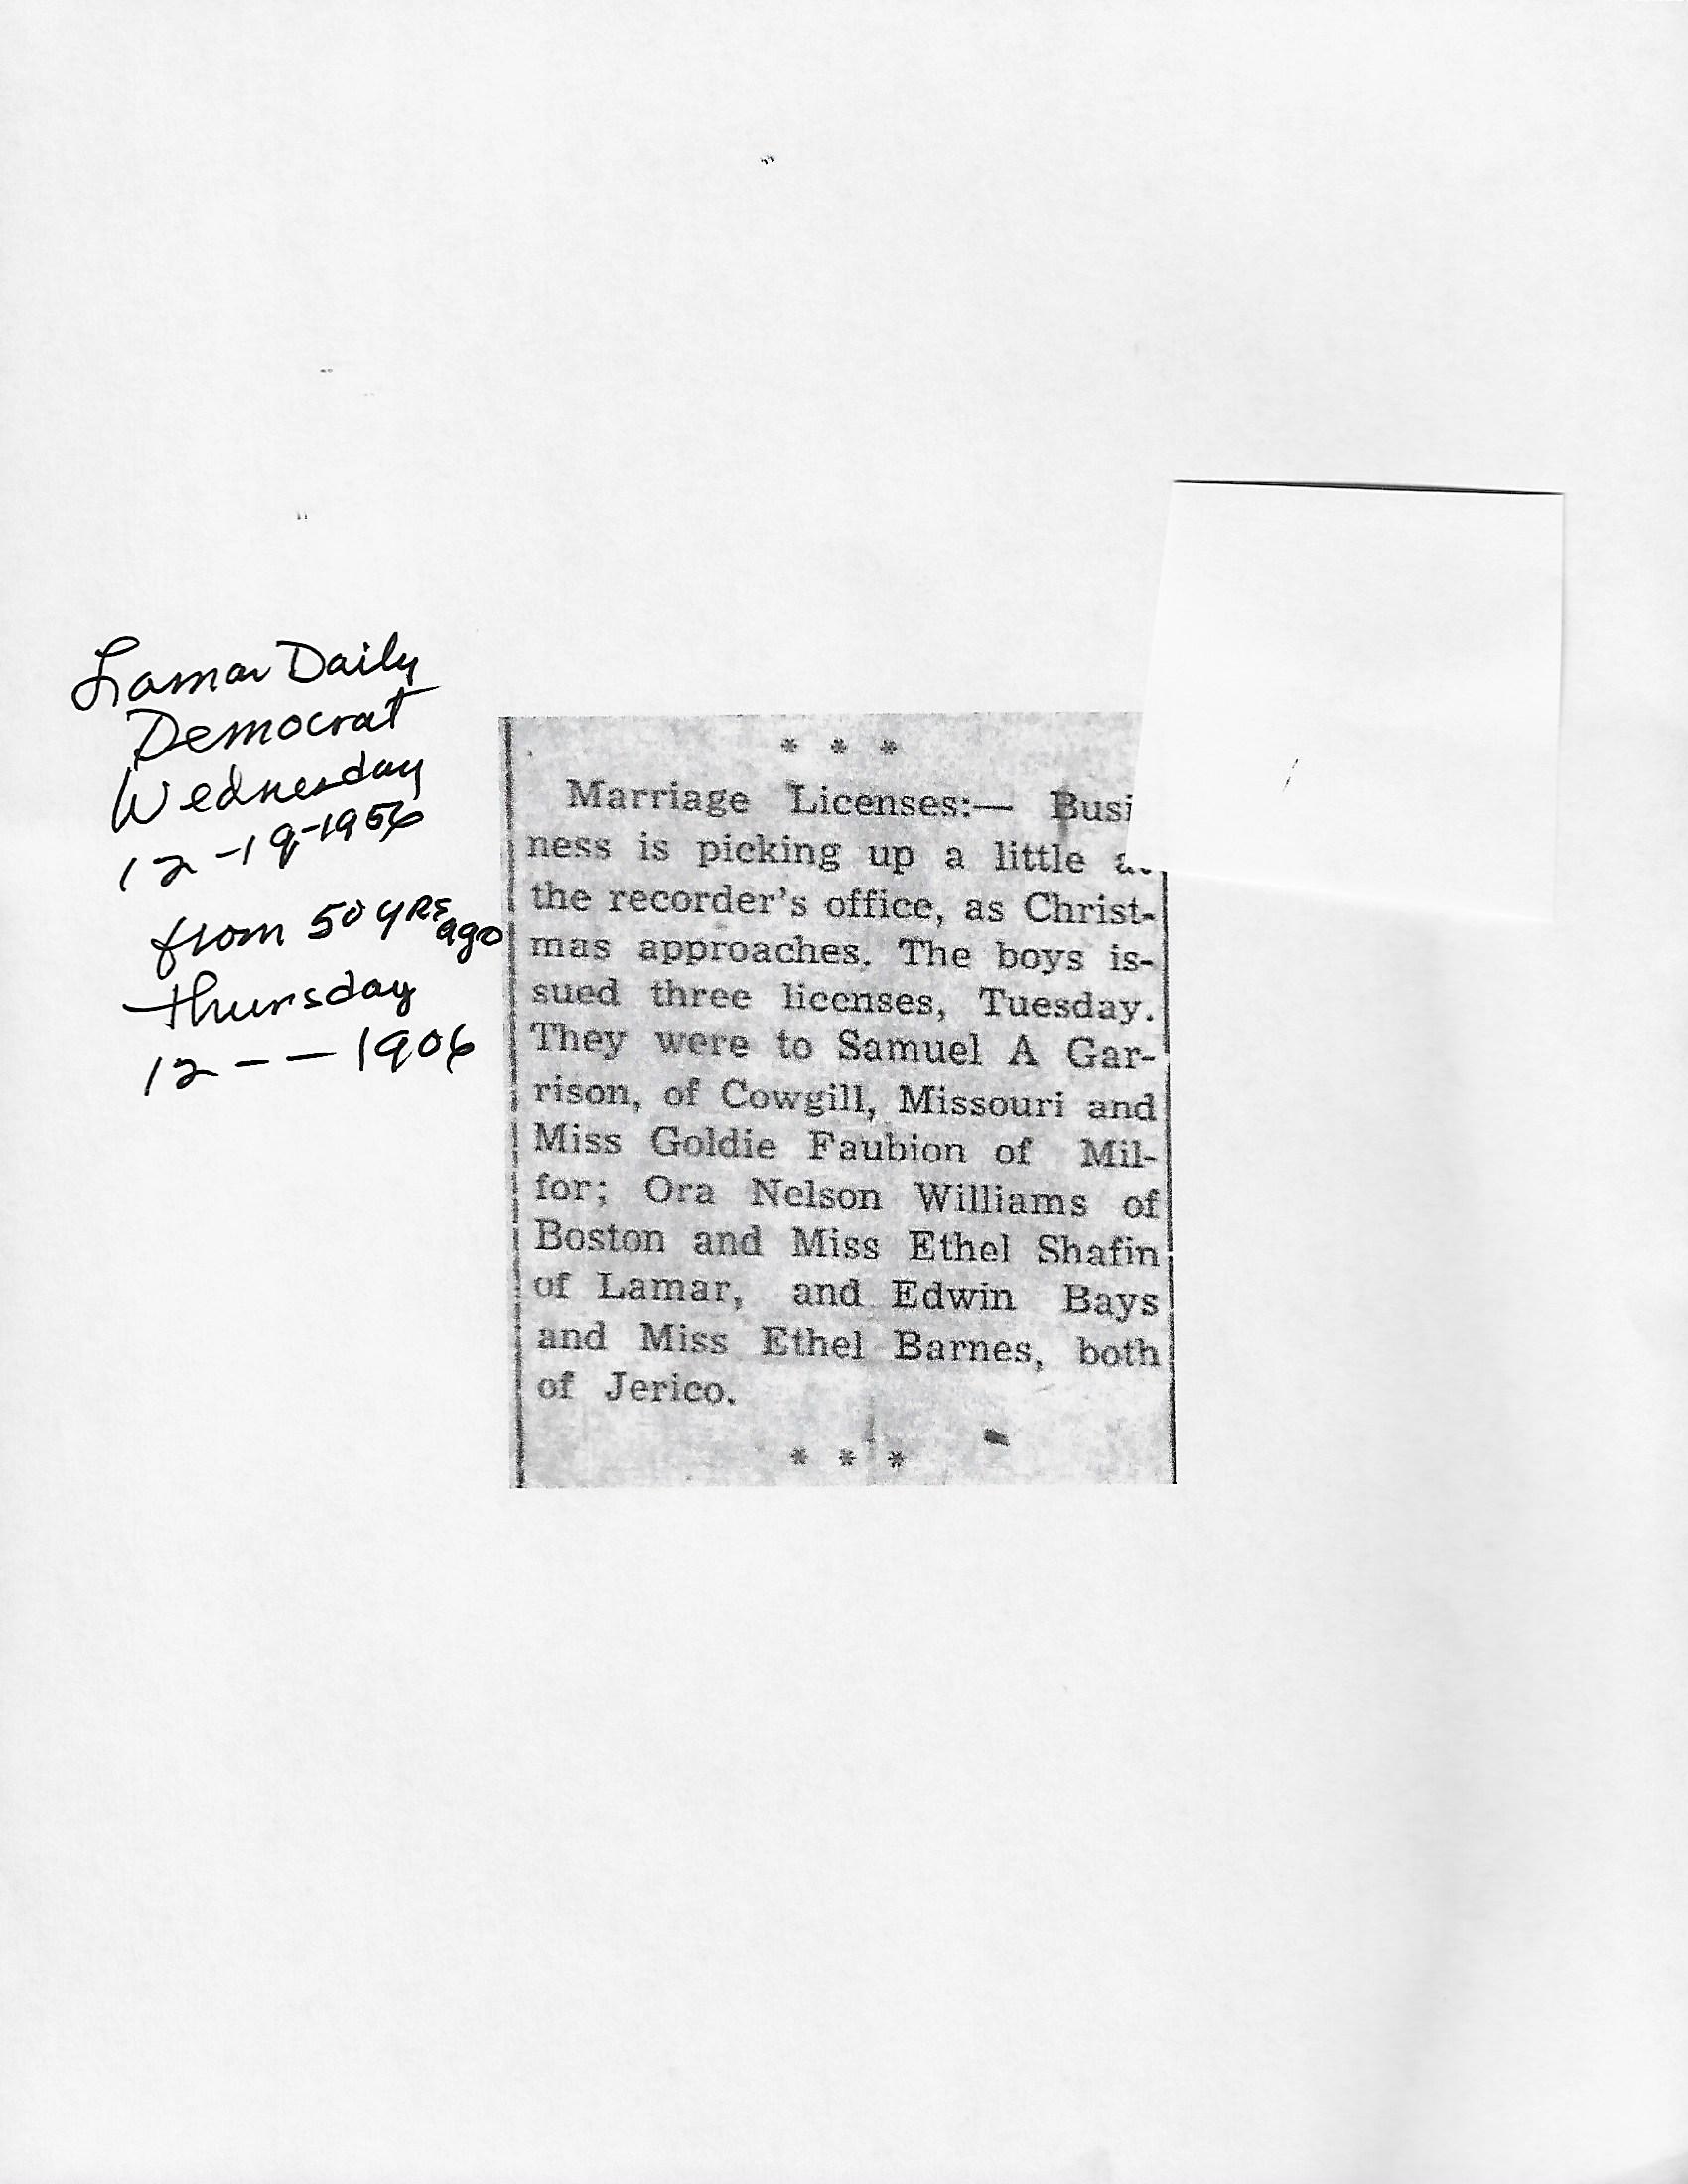 Lamar Daily
Democrat
Wednesday
12-19-1956
from 50 YRS ago
Thursday
12 - — 1906
* * *
Marriage Licenses:— Busi
ness is picking up a little
the recorder's office, as Christ-
mas approaches. The boys is-
sued three licenses, Tuesday.
They were to Samuel A Gar-
rison, of Cowgill, Missouri and
Miss Goldie Faubion of Mil-
for; Ora Nelson Williams of
Boston and Miss Ethel Shafin
of Lamar, and Edwin Bays
and Miss Ethel Barnes, both
of Jerico.
* * *